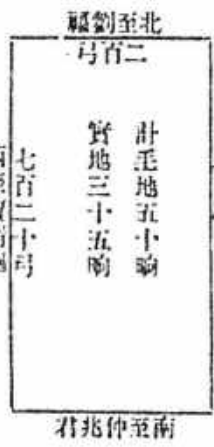 北至劉
二百弓
計毛地五十晌
實地三十五晌
七百二十弓
南至仲兆君